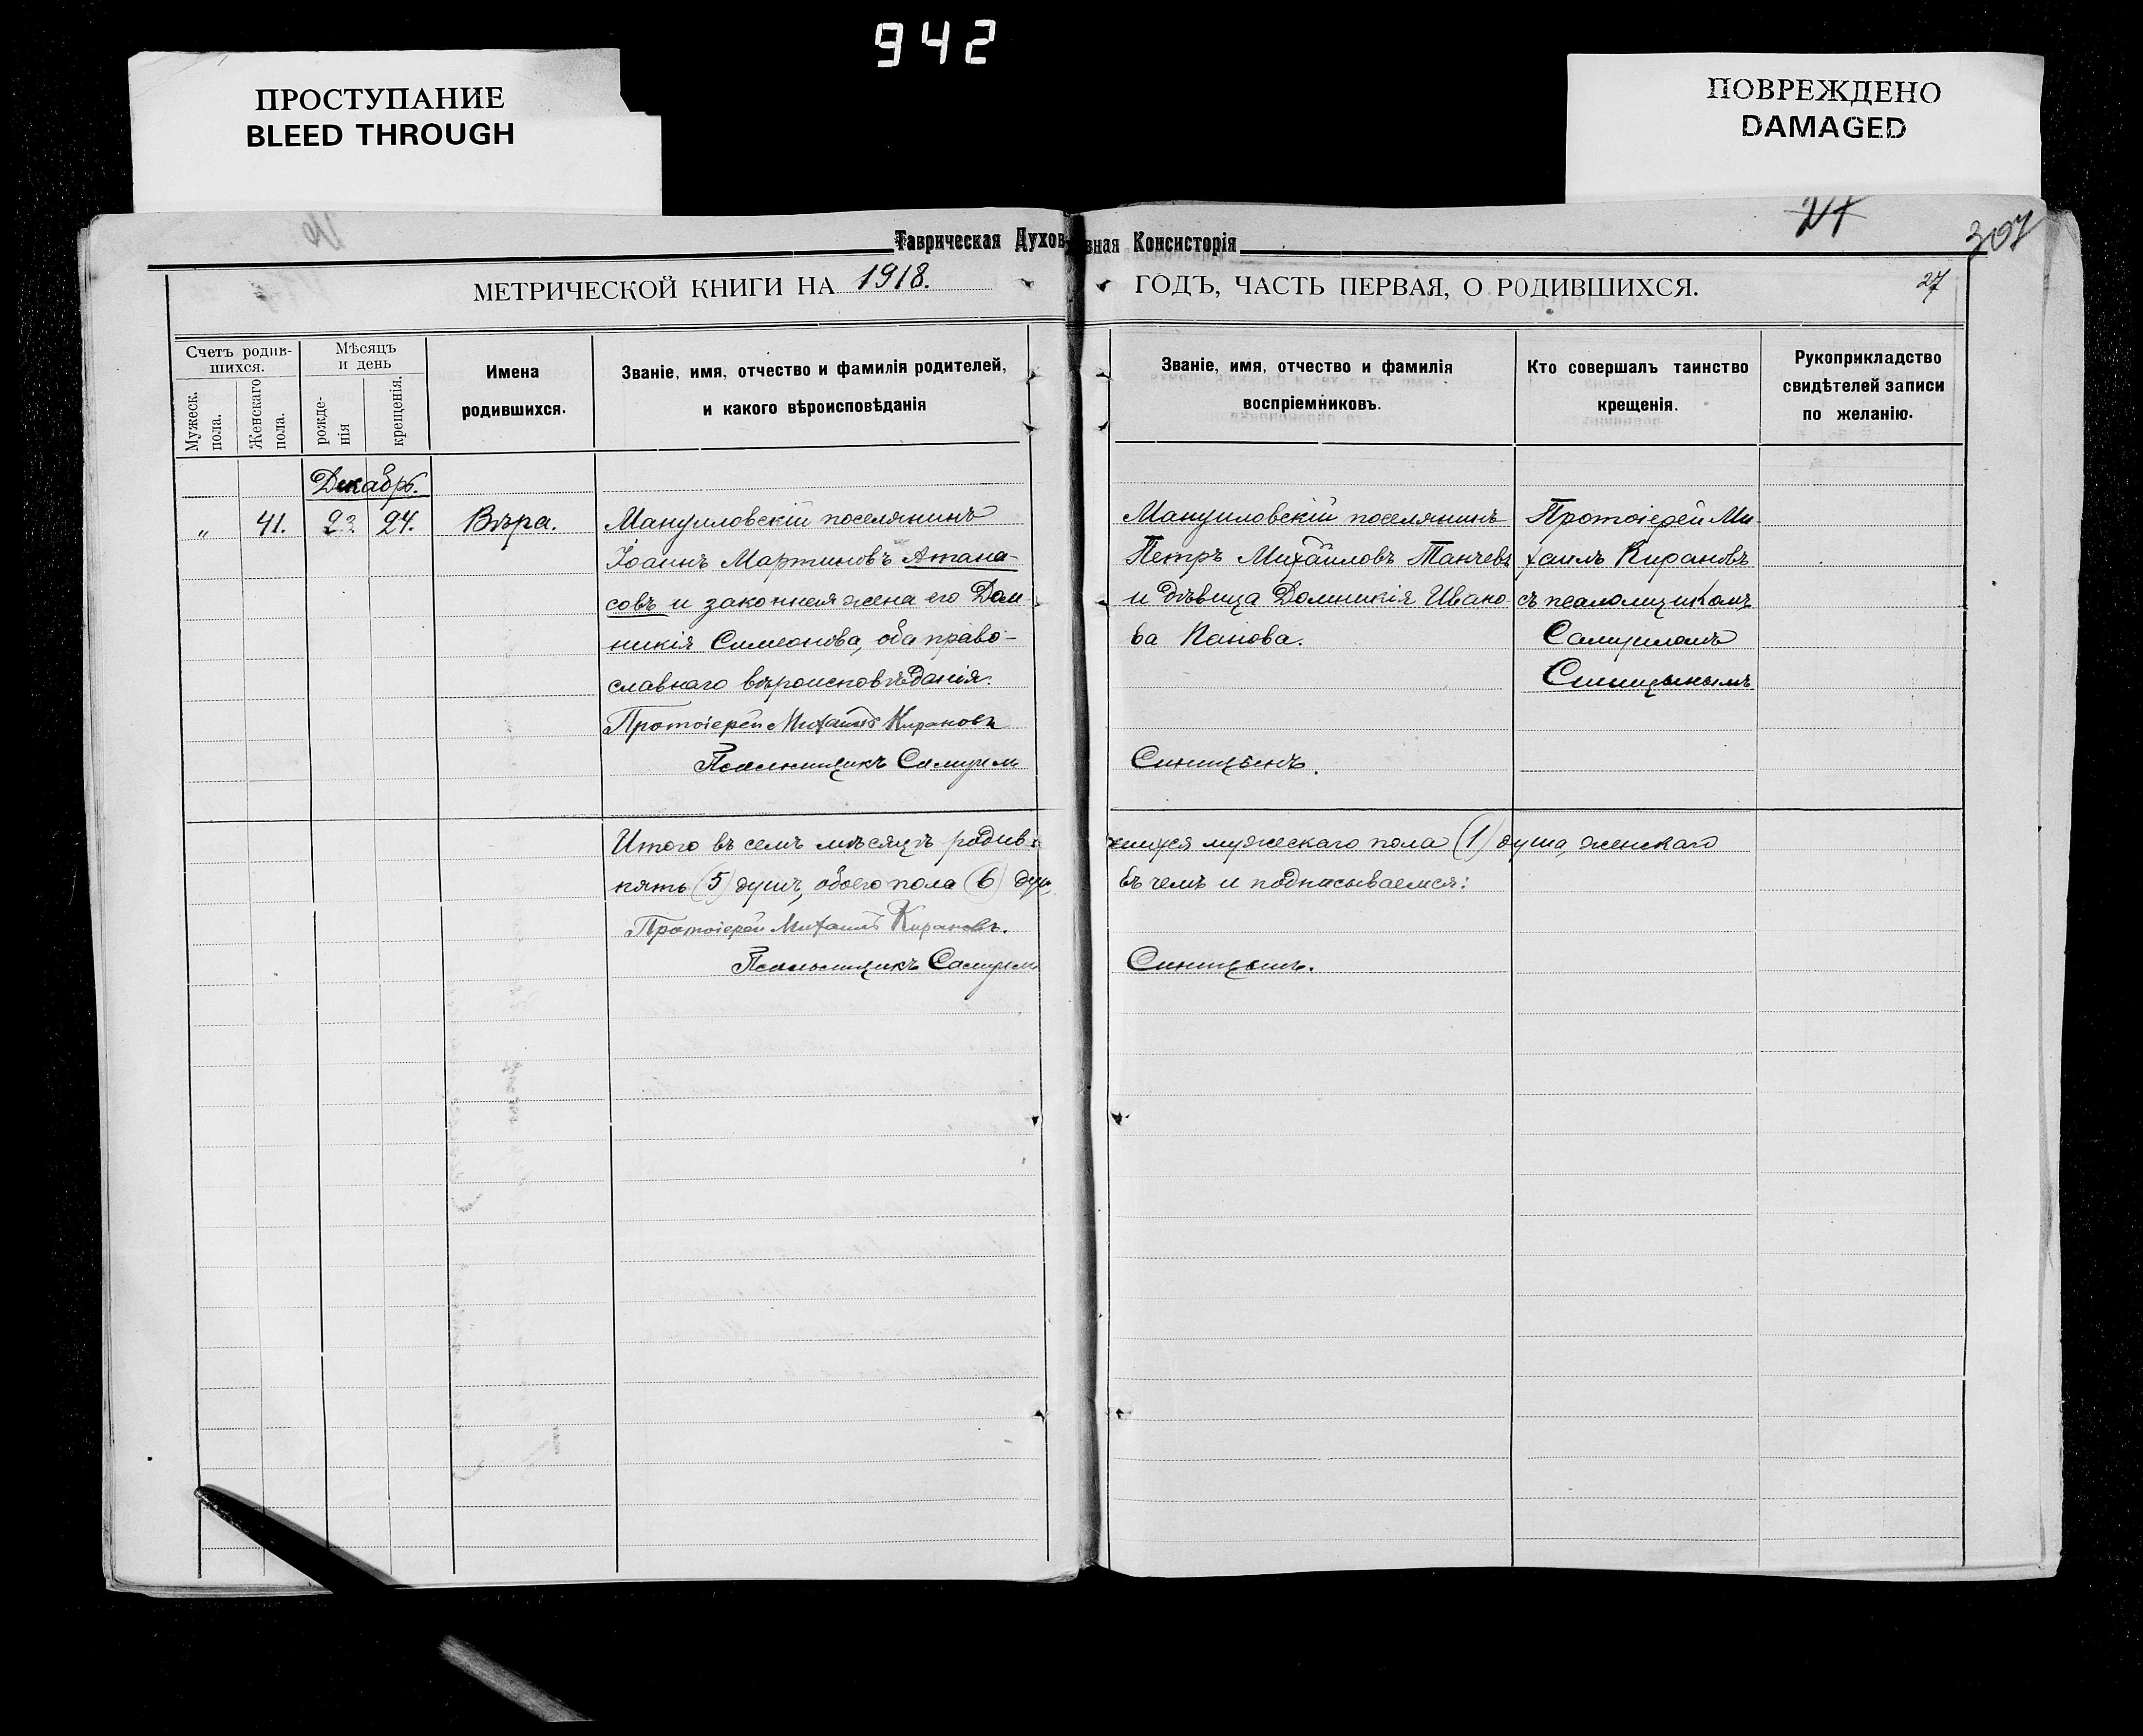 942
ПРОСТУПАНИЕ
BLEED THROUGH
ПОВРЕЖДЕНО
DAMAGED
27
307
Таврическая Духов-вная Консисторія
МЕТРИЧЕСКОЙ КНИГИ НА 1918. ГОДЪ, ЧАСТЬ ПЕРВАЯ, О РОДИВШИХСЯ.
27
Счетъ родив-
шихся.
Мужеск.
пола.
Женскаго
пола.
Мѣсяцъ
и день
рожде-
нія
крещенія.
Имена
родившихся.
Званіе, имя, отчество и фамилія родителей,
и какого вѣроисповѣданія
Званіе, имя, отчество и фамилія
воспріемниковъ.
Кто совершалъ таинство
крещенія.
Рукоприкладство
свидѣтелей записи
по желанію.
Декабрь.
„ 41. 23 24. Вѣра.
Мануиловскій поселянинъ
Іоаннъ Мартиновъ Атана-
совъ и законная жена его Дом-
никія Симеонова, оба право-
славнаго вѣроисповѣданія.
Протоіерей Михаилъ Кирановъ
Псаломщикъ Самуилъ
Мануиловскій поселянинъ
Петръ Михайловъ Танчевъ
и дѣвица Домникія Ивано
ва Панова.
Синицынъ.
Протоіерей Ми-
хаилъ Кирановъ
съ псаломщикомъ
Самуиломъ
Синицынымъ
Итого въ семъ мѣсяцѣ родив-шихся мужескаго пола (1) душа, женскаго
пять (5) душъ, обоего пола (6) душ въ чемъ и подписываемся:
Протоіерей Михаилъ Кирановъ.
Псаломщикъ Самуилъ Синицынъ.